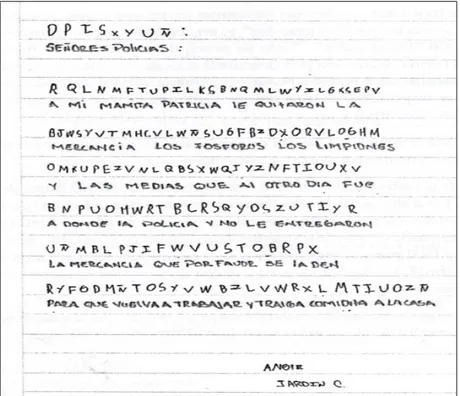 DPISxYUÑ:
SEÑORES POLICIAS:
RQLNMFTUPILKSBNQMLWYZLGKSEPV
A MI MAMITA PATRICIA lE QUITARON LA
BJWSYVTMHCVLWÑSUGFBZDXORVLOGHM
MERCANCIA LOS FOSFOROS LOS LIMPIONES
OMKUPEZVNLQBSXWQJYZNFTIOUXV
Y LAS MEDIAS QUE Al OTRO DIA FUE
BNPUOHWRT BCRSQYDSZUTIYR
A DONDE lA POLICIA Y NO LE ENTREGARON
UÑMBLPJIFWVUSTOBRPX
LA MERCANCIA QUE POR FAVOR SE lA DEN
RYFODMÑTOSYVWBZLVWRXLMTIUOZÑ
PARA QUE VUELVA A TRABAJAR Y TRAIGA COMIDHA A LA CASA
ANGIE
JARDIN C.